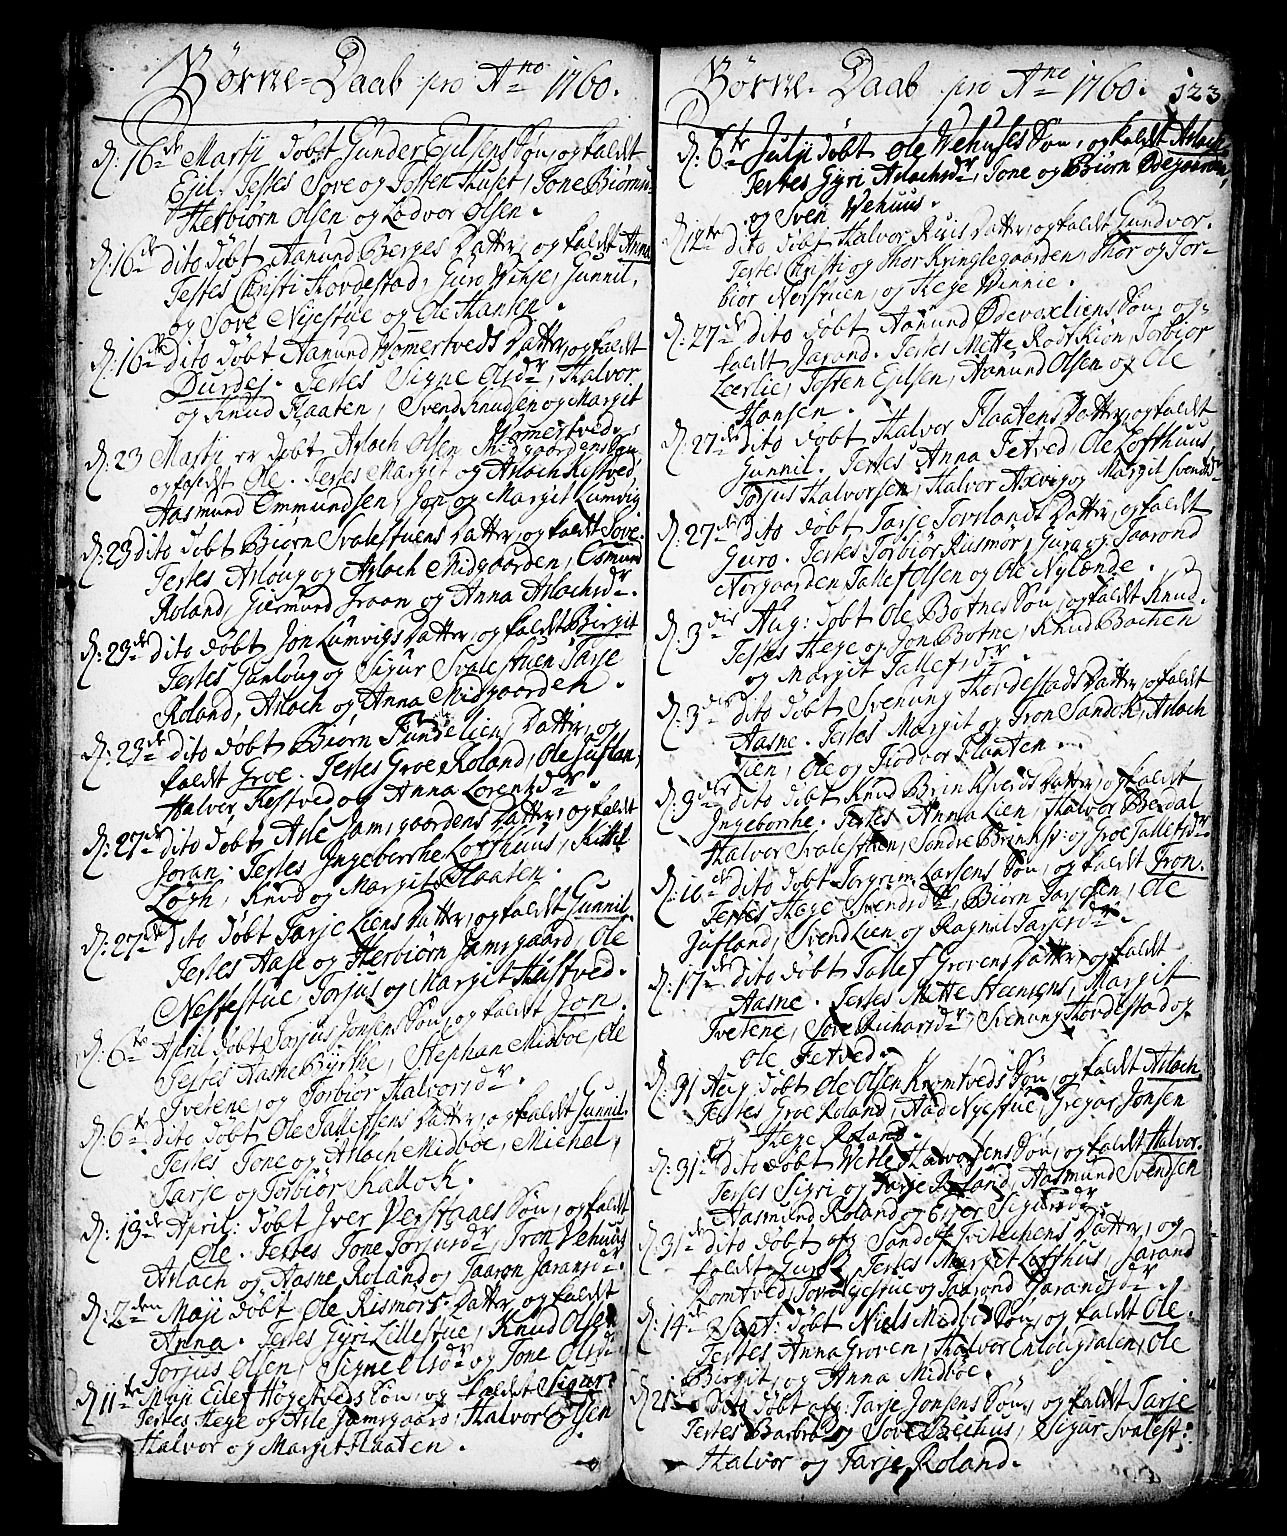 Børne-Daab pro Ano 1760.
d: 16de Martij døbt Gunder Ejelsens Søn, og kaldt
Ejel. Testes Sove og Tosten Huset, Tone Biørns,
Herbiørn Olsen og Lodvor Olsen.
d: 16de dito døbt Aanund Berges Datter, og kaldt Anna
Testes Christi Hordestad, Guro Winje, Gunnil,
og Sove Nyestue og Ole Hansen.
d: 16de dito døbt Aanund Homertveds Datter, og kaldt
Durdej. Testes Signe Olsdr, Halvor
og Knud Flaaten, Svend Knudsen og Margit
Homertved.
d: 23 Martij er døbt Aslach Olsen Midgaardens Søn
og kaldt Ole. Testes Margit og Aslach Kistved,
Aasmund Emmundsen, Jon og Margit Lumvig
d: 23 dito døbt Biørn Svalestuens Datter, og kaldt Sove.
Testes Asloug og Aslach Midgaarden, Osmund
Roland, Giermund Traan og Anna Aslachsdr.
d: 23de dito døbt Jon Lumvigs Datter, og kaldt Birgit
Testes Gunloug og Sigur Svalestuen Tarje
Roland, Aslach og Anna Midgaarden.
d: 23de dito døbt Biørn Fundeliens Datter, og
kaldt Groe. Testes Groe Roland, Ole Jufland,
Halvor Kestved og Anna Lorentzdr.
d: 27de dito døbt Asle Jamsgaardens Datter, og kaldt
Joran. Testes Ingeborrhe Lofthuus, Kittel
Løgh, Knud og Margit Flaaten.
d: 27de dito døbt Tarje Liens Datter, og kaldt Gunnil.
Testes Aase og Herbiørn Jamsgaard, Ole
Nessestue, Torjus og Margit Hustved.
d: 6te April døbt Torjus Jonsens Søn, og kaldt Jon.
Testes Aasne Byrthe, Stephan Midboe, Ole
Tvetene, og Torbiør Halvorsdr.
d: 6te dito døbt Ole Tallefsens Datter, og kaldt Gunnil.
Testes Tone og Aslach Midboe, Michel,
Tarje og Torbiør Kallok.
d: 13de April: døbt Iver Verstaaes Søn, og kaldt
Ole. Testes Tone Torjusdr, Tron Vehuus
Aslach og Aasne Roland og Taaron Jaransdr.
d: 2den Maji døbt Ole Rismørs Datter, og kaldt
Anna. Testes Gyri Lillestue, Knud Olsen
Torjus Olsen, Signe Olsdr og Tone Olsdr
d: 11te Maji Eilef Høgetveds Søn, og kaldt Sigur.
Testes Hege og Asle Jamsgaard, Halvor Olsen
Halvor og Margit Flaaten.
Børne-Daab pro Ano 1760. 123
d: 6te Julij døbt Ole Wehuses Søn, og kaldt Aslach
Testes Gyri Aslachsdr, Tone og Biørn Ødegaarden,
og Sven Wehuus.
d: 12te dito døbt Halvor Huis Datter, og kaldt Gundvor.
Testes Christi og Thor Kringlegaarden, Thor og Tor-
biør Nerstuen, og Hege Winnie.
d: 27de dito døbt Aanund Ødevaxliens Søn, og
kaldt Jarand. Testes Mette Rodtkion, Torbior
Leerlie, Tosten Ejelsen, Aanund Olsen og Ole
Hansen.
d: 27de dito døbt Halvor Flaatens Datter, og kaldt
Gunnil. Testes Anna Tetved, Ole Lofthuus
Torjus Halvorsen, Halvor Aavig og Margit Svendsdr
d: 27de dito døbt Tarje Tovslands Datter, og kaldt
Guro. Testes Torbiør Rismør, Guro og Taarond
Norgaarden Tallef Olsen og Ole Nylænde.
d: 3die Aug: døbt Ole Botnes Søn, og kaldt Knud.
Testes Hege og Jon Botne, Knud Bachen
og Margit Tallefsdr
d: 3die dito døbt Svenung Hordestads Datter, og kaldt
Aasne. Testes Margit og Tron Sandok, Aslach
Lien, Ole og Liodvor Flaaten.
d: 3die dito døbt Knud Brinkhverds Datter, og kaldt
Ingeborrhe. Testes Anna Lien, Halvor Berdal
Halvor Svalestuen, Sondre Brinksv: og Groe Tallefsdr.
d: 10de dito døbt Torgrim Larsens Søn, og kaldt Tron.
Testes Hege Svendsdr, Biørn Tarjesen, Ole
Jufland, Svend Lien og Ragnil Tarjesdr.
d: 17de dito døbt Tallef Grovens Datter, og kaldt
Aasne. Testes Mette Steensens, Margit
Tvetene, Sove Richardsdr, Svenung Hordestad og
Ole Tetved.
d: 31 Aug døbt Ole Olsen Kromtveds Søn, og kaldt Aslach.
Testes Groe Roland, Aad Nyestue, Gregar Jonsen
og Hege Roland.
d: 31te dito døbt Wetle Halvorsens Søn, og kaldt Halvor.
Testes Sigri og Tarje Roland, Aasmund Svendsen
Aasmund Roland og Egier Sigursdr
d: 31te dito døbt og Sandok Tvitechens Datter, og
kaldt Guro. Testes Margit Lofthus, Jarand
Romtved, Sove Nyestue og Taarond Jaransdr.
d: 14de Sept: døbt Niels Midbø Søn, og kaldt Ole.
Testes Anna Groven, Halvor Enlogdalen, Ole
Birgit, og Anna Midbøe.
d: 21 Dito døbt og: Tarje Jonsens Søn, og kaldt Tarje
Testes Barbro og Sove Bechus, Sigur Svalest:
Halvor og Tarje Roland.